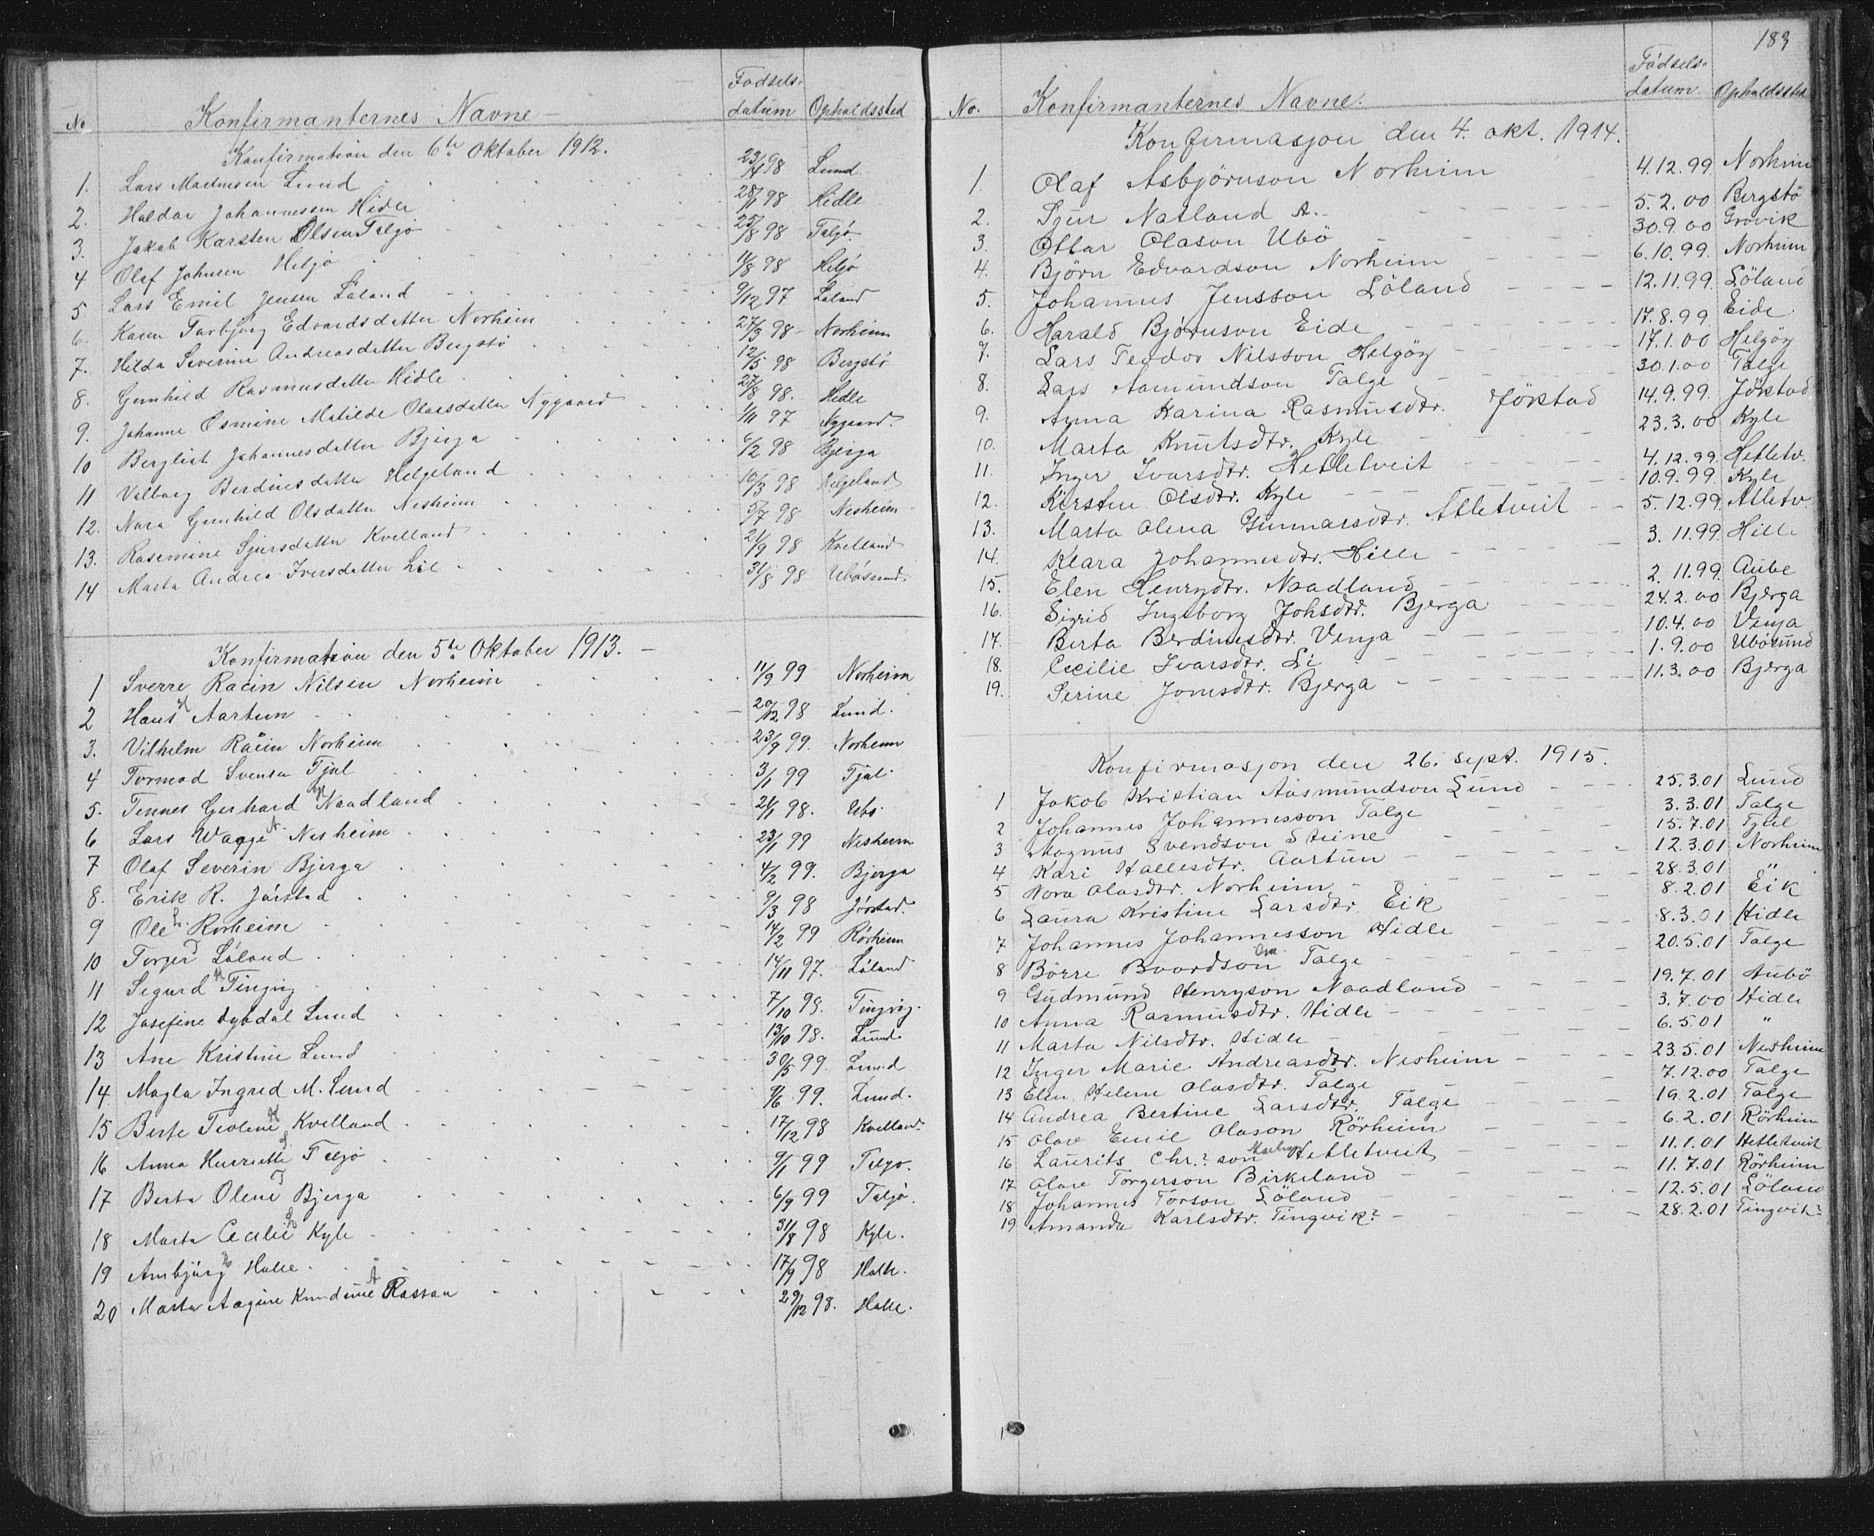 No Konfirmanternes Navne Fødsels- datum Opholdssted
Konfirmation den 6te Oktober 1912.
1. Lars Lund 23/4 98 Lund.
2. Haldar Johannessen Hidle 28/1 98 Hidle
3. Jakob Karsten Olsen Talgø 25/8 98 Talgø.
4 Olaf Johnsen Helgø 14/8 98 Helgø
5 Lars Emil Jensen Løland 9/12 97 Løland
6. Karen Torbjørg Edvardsdatter Norheim 27/3 98 Norheim
7. Hilda Severine Andreasdatter Bergstø 12/5 98 Bergstø
8. Gunhild Rasmusdatter Hidle 27/8 98. Hidle
9. Johanne Osmine Matilde Olaisdatter Nygaard 1/11 97 Nygaard.
10 Bergliot Johannesdatter Bjerga 6/2 98 Bjerga
11 Valborg Berdinesdatter Helgeland 10/3 98 Helgeland
12. Nora Gunhild Olsdatter Nesheim 5/7 98 Nesheim
13. Rasmine Sjursdatter Kvelland 21/9 98 Kvelland
14 Marta Andrea Iversdatter Lie 31/8 98 Ubøsund.
Konfirmation den 5te Oktober 1913.
1 Sverre Racin Nilsen Norheim 11/9 99 Norheim
2 Hans Aartun 20/12 98 Lund.
3. Vilhelm Racin Norheim 23/9 99 Norheim
4 Tormod Svensen Tjul 3/1 99 Tjul
5. Tennes Gerhard Naadland 21/1 98. Ubø
6 Lars Waage Nesheim 23/1 99 Nesheim
7 Olaf Severin Bjerga 4/2 99. Bjerga
8. Erik R. Jørstad 9/3 98 Jørstad.
9 Ole Rørheim 14/2 99 Rørheim
10 Torger Løland 14/11 97. Løland
11 Sigurd Tingvig 7/10 98. Tingvig.
12 Josefine Dybdal Lund 13/10 98. Lund
13 Ane Kristine Lund 30/5 99. Lund
14. Magla Ingrid M. Lund 9/6 99. Lund.
15 Berte Teoline Kvelland 17/12 98 Kvelland.
16 Anna Henriette Talgø 9/1 99 Talgø.
17 Berta Oline Bjerga 6/9 99 Talgø.
18 Marta Cecilie Kyle 31/8 98 Kyle.
19 Ambjørg Halle 17/9 98 Halle.
20 Marta Aagine Knudine Rossau 29/12 98. Halle.
183
No. Konfirmanternes Navne. Fødsels- datum. Opholdssted
Konfirmasjon den 4. okt. 1914.
1. Olaf Asbjørnson Norheim 4.12.99 Norheim
2. Sjur Natland A. 5.2.00 Bergstö
3. Ottar Olason Ubö 30.9.00 Grövik
4. Björn Edvardson Norheim 6.10.99. Norheim
5. Johannes Jensson Löland 12.11.99 Löland
6. Harald Bjørnson Eide 17.8.99 Eide.
7. Lars Teodor Nilsson Helgöy 17.1.00 Helgöy
8. Lars Aamundson Talge 30.1.00 Talge
9. Anna Karina Rasmusdtr. Jörstad 14.9.99. Jörstad
10. Marta Knutsdtr. Kyle 23.3.00 Kyle
11. Inger Ivarsdtr. Hetletveit 4.12.99. Hetletv.
12. Kirsten Olsdtr. Kyle 10.9.99 Kyle
13. Marta Olena Gunnarsdtr. Atletveit 5.12.99 Atletv.
14. Klara Johannesdtr. Hille 3.11.99 Hille
15. Elen Henrydtr. Naadland 2.11.99. Aubø
16. Sigrid Ingeborg Johsdtr. Bjerga 24.2.00 Bjerga
17. Berta Berdinesdtr. Venja 10.4.00 Venja
18. Cecilie Ivarsdtr. Li 1.9.00 Ubösund
19. Serine Jonsdtr. Bjerga 11.3.00 Bjerga
Konfirmasjon den 26. sept. 1915.
1 Jakob Kristian Aasmundson Lund 25.3.01 Lund
2 Johannes Johannesson Talge 3.3.01 Talge
3 Magnus Svendson Steine 15.7.01 Tjul
4 Kari Hallesdtr. Aartun 12.3.01 Norheim
5 Nora Olasdtr. Norheim 28.3.01 "
6 Laura Kristine Larsdtr. Eik 8.2.01 Eik
7 Johannes Johannesson Hidle 8.3.01 Hidle
8 Börre Baardson Talge 20.5.01 Talge
9 Gudmund Henryson Naadland 19.7.01 Aubö
10 Anna Rasmusdtr. Hidle 3.7.00 Hidle
11 Marta Nilsdtr. Hidle 6.5.01 "
12 Inger Marie Andreasdtr. Nesheim 23.5.01 Nesheim
13 Elen Helene Olasdtr. Talge 7.12.00 Talge
14 Andrea Bertine Larsdtr. Talge 19.2.01 Talge
15 Olav Emil Olason Rörheim 6.2.01 Rörheim
16 Laurits Chr.? son Hetletveit 11.1.01 Hetletveit
17 Olav Torgerson Birkeland 11.7.01 Rörheim
18 Johannes Torson Löland 12.5.01 Löland
19 Amanda Karlsdtr. Tingvik? 28.2.01 Tingvik?